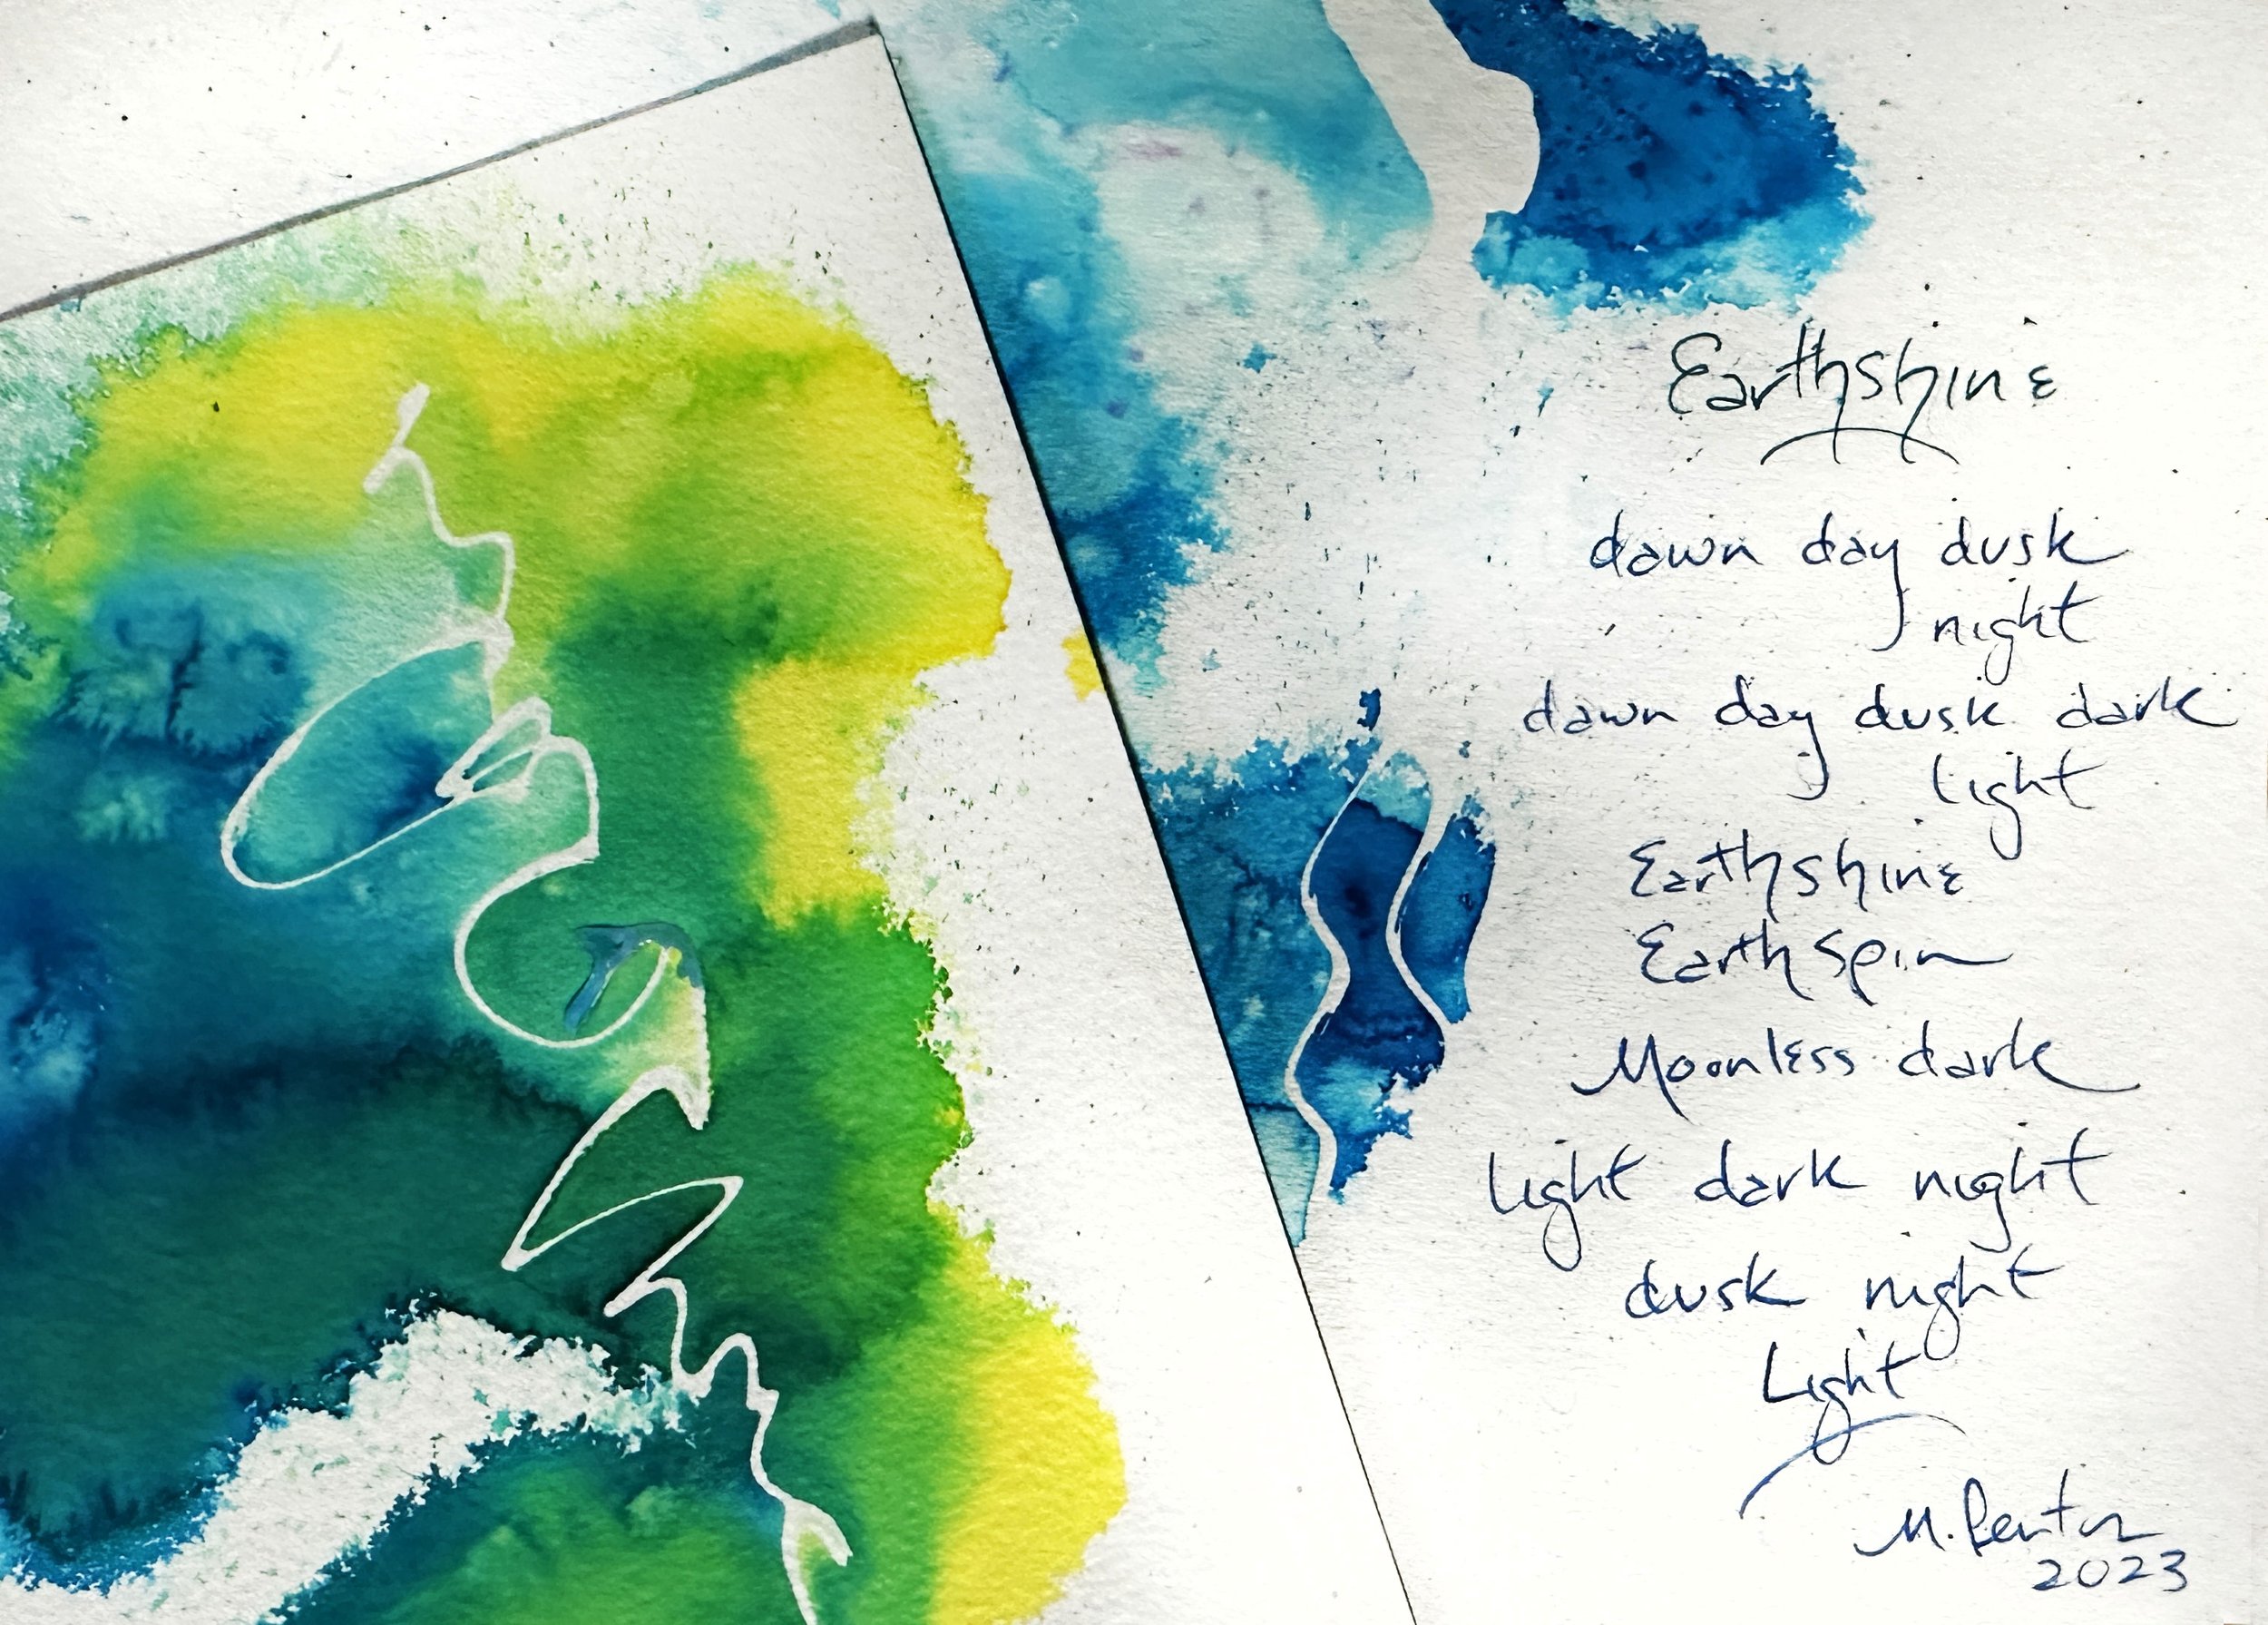 Earthshine
dawn day dusk
night
dawn day dusk dark
light
Earthshine
Earth Spin
Moonless dark
light dark night
dusk night
Light
M.
2023